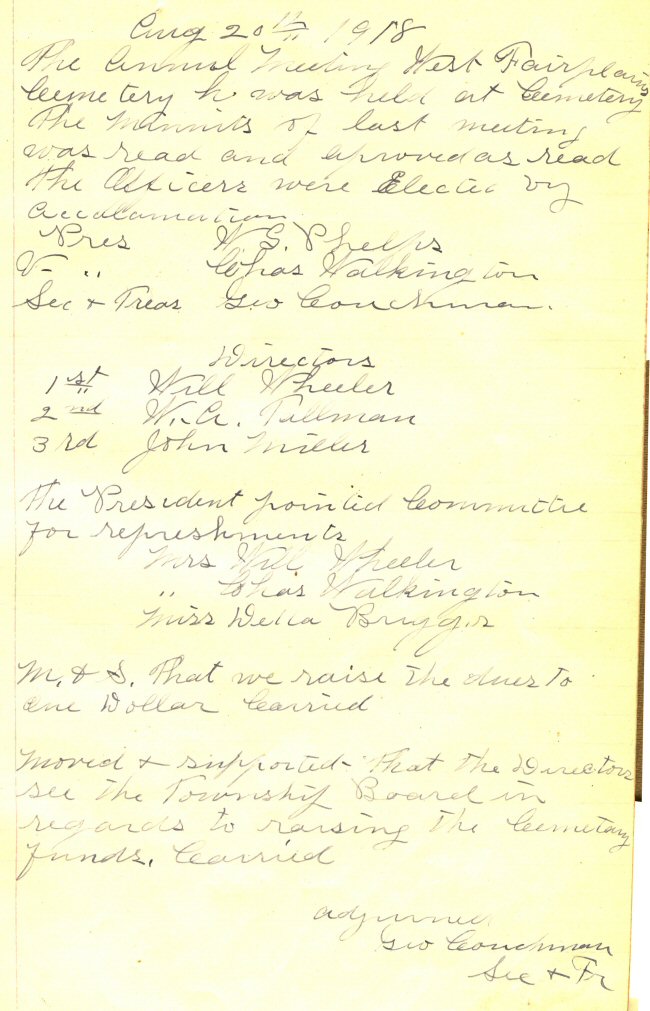 Aug 20th 1918
The Annual Meeting West Fairplains
Cemetery was held at Cemetery
The Minnits of last meeting
was read and aproved as read
The Officers were Elected by
Acclamation
Pres W. G. Phelps
V- " Chas Walkington
Sec + Treas Geo Couchman.
Directors
1st Will Wheeler
2nd W. A. Tillman
3rd John Miller
The President pointed Committie
for represhments
Mrs Will Wheeler
" Chas Walkington
Miss Della Bruggs
M. & S. That we raise the dues to
one Dollar Carried
Moved + supported that the Directors
see the Township Board in
regards to raising the Cemetary
funds. Carried
adjurned
Geo Couchman
Sec + Tr